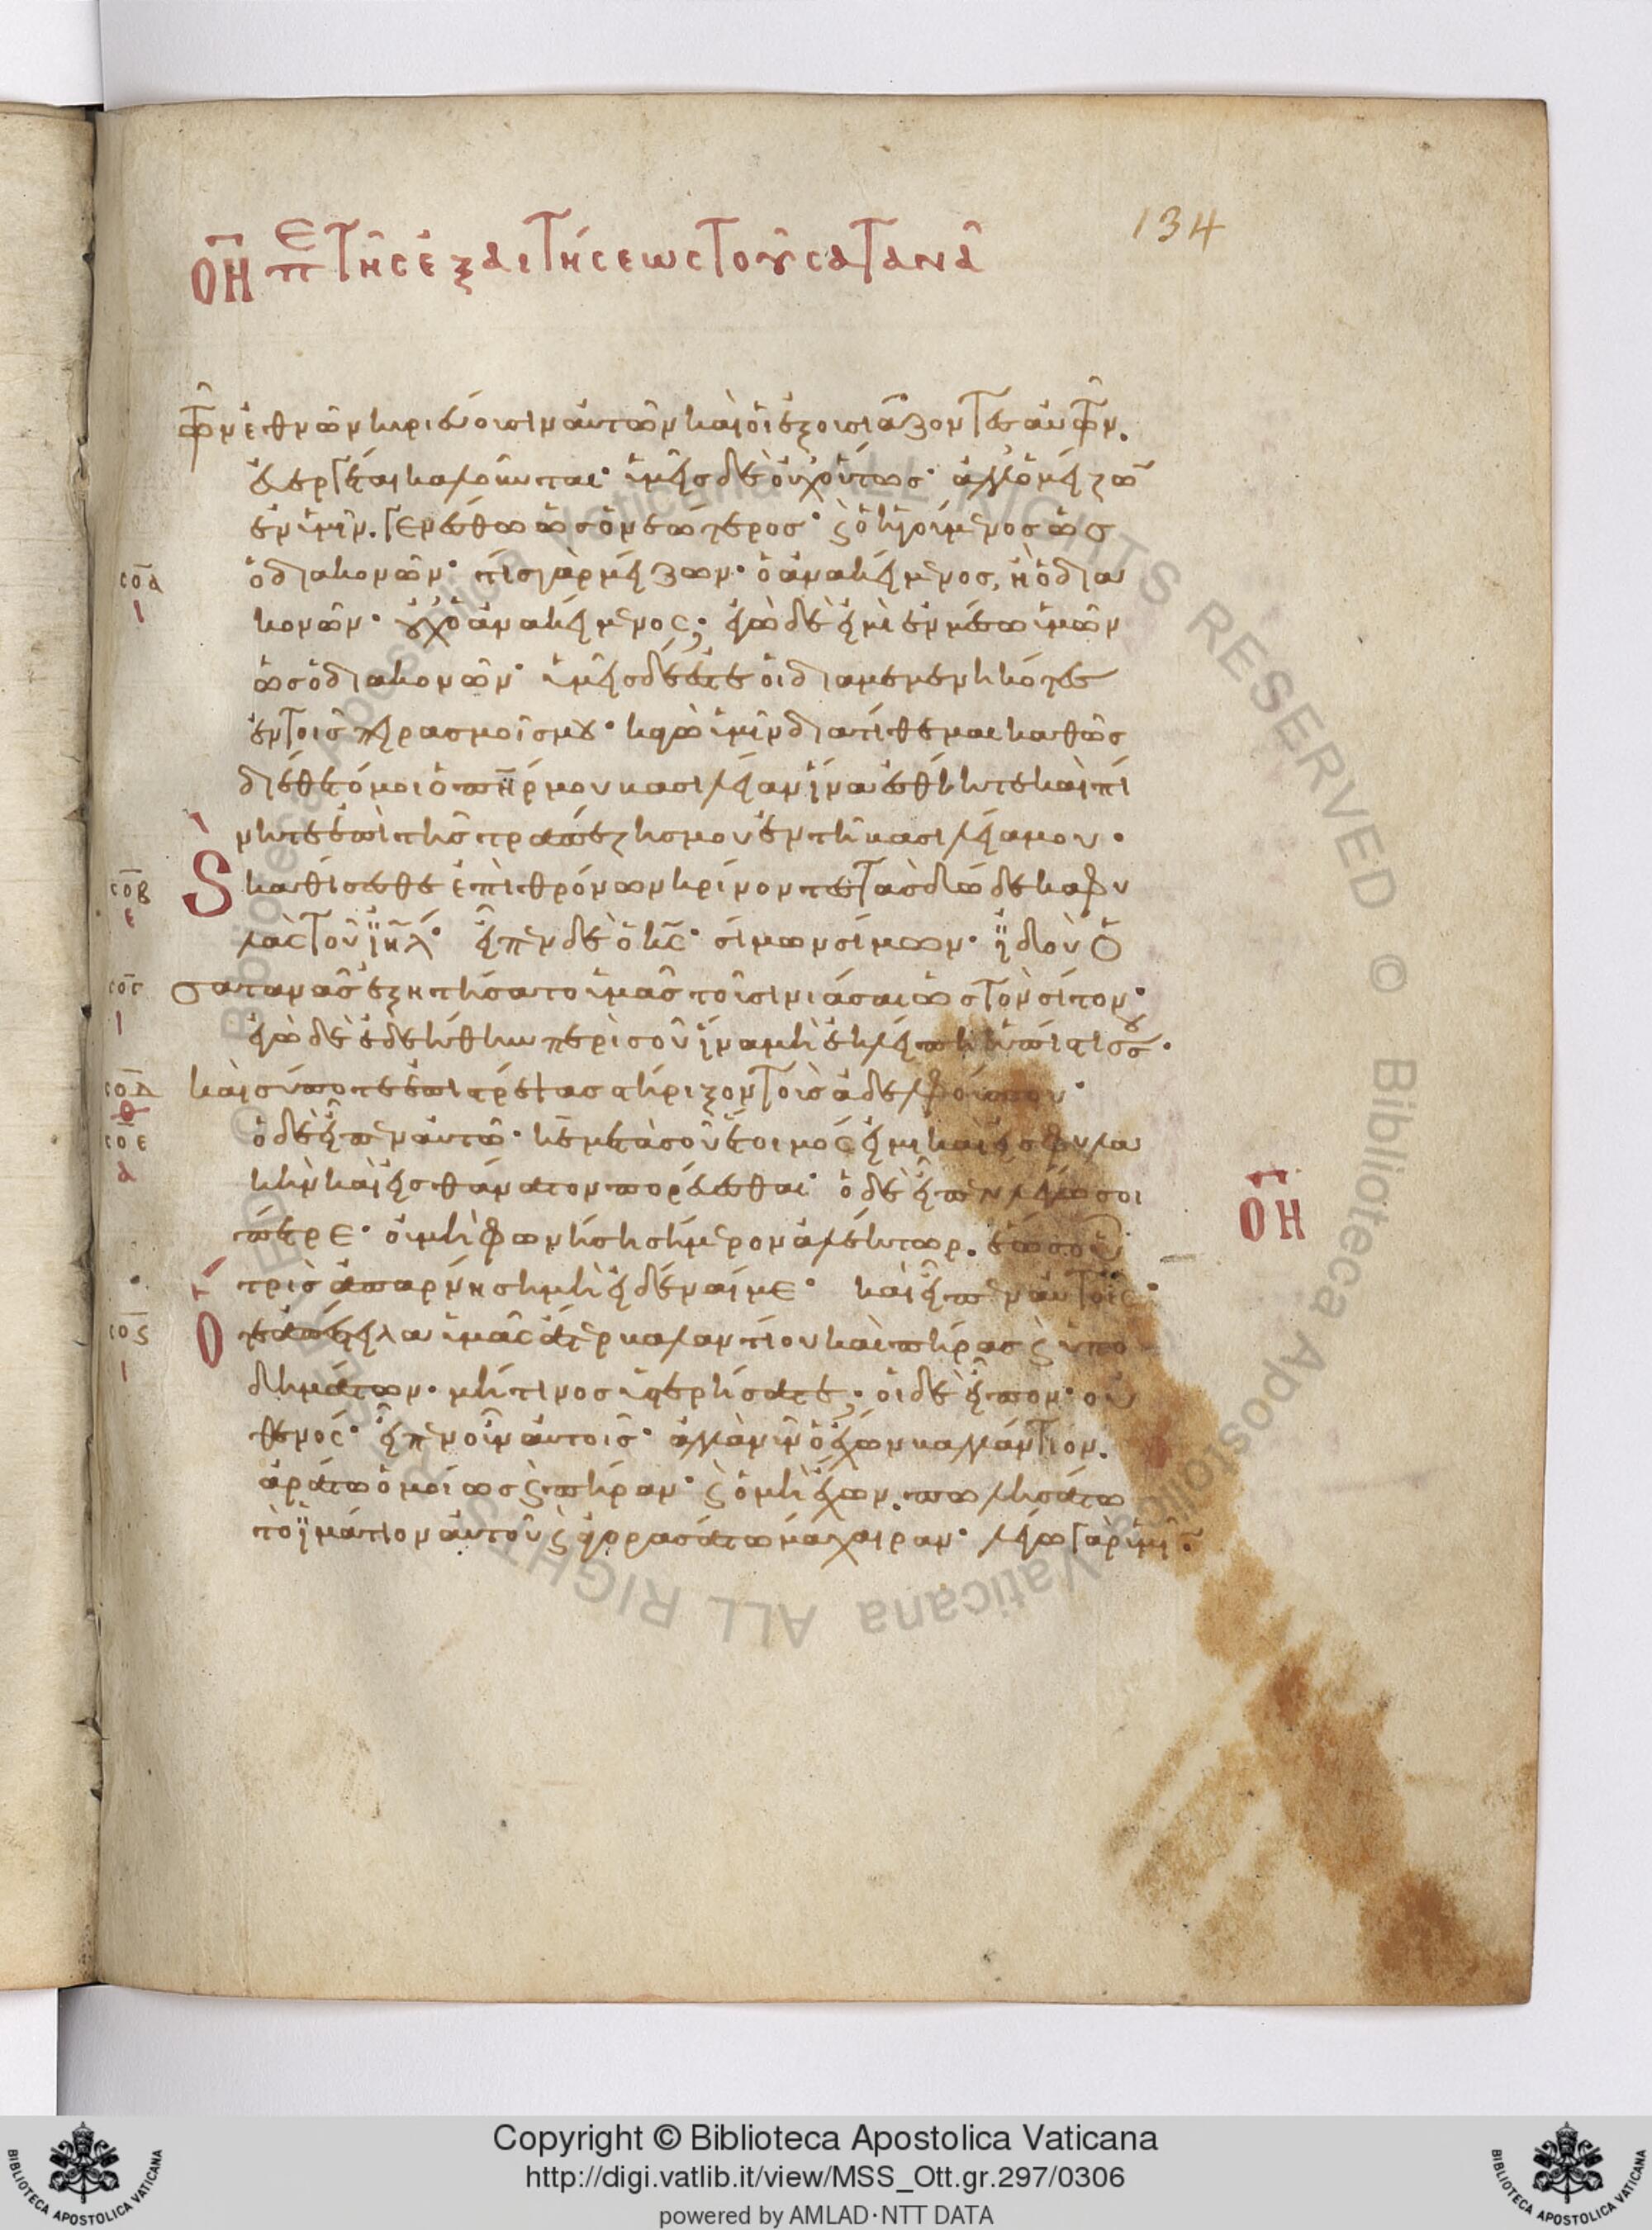 134
ΟΗ Περὶ τῆς ἐξαιτήσεως τοῦ σατανᾶ
τῶν ἐθνῶν κυριεύουσιν αὐτῶν καὶ οἱ ἐξουσιάζοντες αὐτῶν.
εὐεργέται καλοῦνται· ὑμεῖς δὲ οὐχ οὕτως· ἀλλ' ὁ μείζων
ἐν ὑμῖν. γενέσθω ὡς ὁ νεώτερος· ϗ ὁ ἡγούμενος ὡς
σοα ὁ διακονῶν· τίς γὰρ μείζων· ὁ ἀνακείμενος, ἢ ὁ δια
ι κονῶν· οὐχ ὁ ἀνακείμενος; ἐγὼ δὲ εἰμὶ ἐν μέσω ὑμῶν
ὡς ὁ διακονῶν· ὑμεῖς δέ ἐστε οἱ διαμεμενηκότες
ἐν τοῖς πειρασμοῖς μου· κἀγὼ ὑμῖν διατίθεμαι καθὼς
διέθετό μοι ὁ πηρ μου βασιλείαν ἵνα ἐσθίητε καὶ πί
νητε ἐπὶ τῆς τραπέζης μου ἐν τῆ βασιλεία μου.
σοβ ε ϗ καθίσεσθε ἐπὶ θρόνων κρίνοντες τὰς δώδεκα φυ
λὰς τοῦ ιηλ· εἶπεν δὲ ὁ κς· σίμων σίμων· ἰδοὺ ὁ
σογ ι σατανᾶς ἐξητήσατο ὑμᾶς τοῦ σινιάσαι ὡς τὸν σῖτον·
ἐγὼ δὲ ἐδεήθην περὶ σοῦ ἵνα μὴ ἐκλείπη ἡ πίστις σου.
σοδ θ καὶ σύ ποτε ἐπιστρέψας στήριξον τοὺς ἀδελφούς σου·
σοε ὁ δὲ εἶπεν αὐτῶ· κε μετὰ σοῦ ἕτοιμός εἰμι καὶ εἰς φυλα
α κὴν καὶ εἰς θάνατον πορεύεσθαι· ὁ δὲ εἶπεν λέγω σοι
ΟΗ
πέτρε· οὐ μὴ φωνήση σήμερον ἀλέκτωρ. ἕως οὗ
τρὶς ἀπαρνήση μὴ εἰδέναι με· καὶ εἶπεν αὐτοῖς·
σοϛ ὅτε ἀπέστειλα ὑμᾶς ἄτερ βαλαντίου καὶ πήρας ϗ ὑπο
ι δημάτων· μή τινος ὑστερήσατε; οἱ δὲ εἶπον· οὐ
θενός· εἶπεν οὖν αὐτοῖς· ἀλλὰ νῦν ὁ ἔχων βαλλάντιον.
ἀράτω ὁμοίως ϗ πήραν· ϗ ὁ μὴ ἔχων. πωλησάτω
τὸ ἱμάτιον αὐτοῦ ϗ ἀγορασάτω μάχαιραν· λέγω γὰρ ὑμῖν
Copyright © Biblioteca Apostolica Vaticana
http://digi.vatlib.it/view/MSS_Ott.gr.297/0306
powered by AMLAD·NTT DATA
BIBLIOTECA APOSTOLICA VATICANA
BIBLIOTECA APOSTOLICA VATICANA
© Biblioteca Apostolica Vaticana ALL RIGHTS RESERVED © Biblioteca Apostolica Vaticana ALL RIGHTS RESERVED